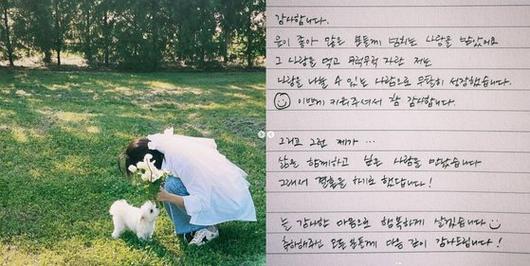 감사합니다.
운이 좋아 많은 분들께 넘치는 사랑을 받았네요
그 사랑을 먹고 무럭무럭 자란 저는
사랑을 나눌 수 있는 사람으로 무탈히 성장했습니다.
이쁘게 키워주셔서 참 감사합니다.
그리고 그런 제가 ...
삶을 함께하고 싶은 사람을 만났습니다
그래서 결혼을 하기로 했답니다!
늘 감사한 마음으로 행복하게 살겠습니다
축하해주신 모든 분들께 다시 깊이 감사드립니다!